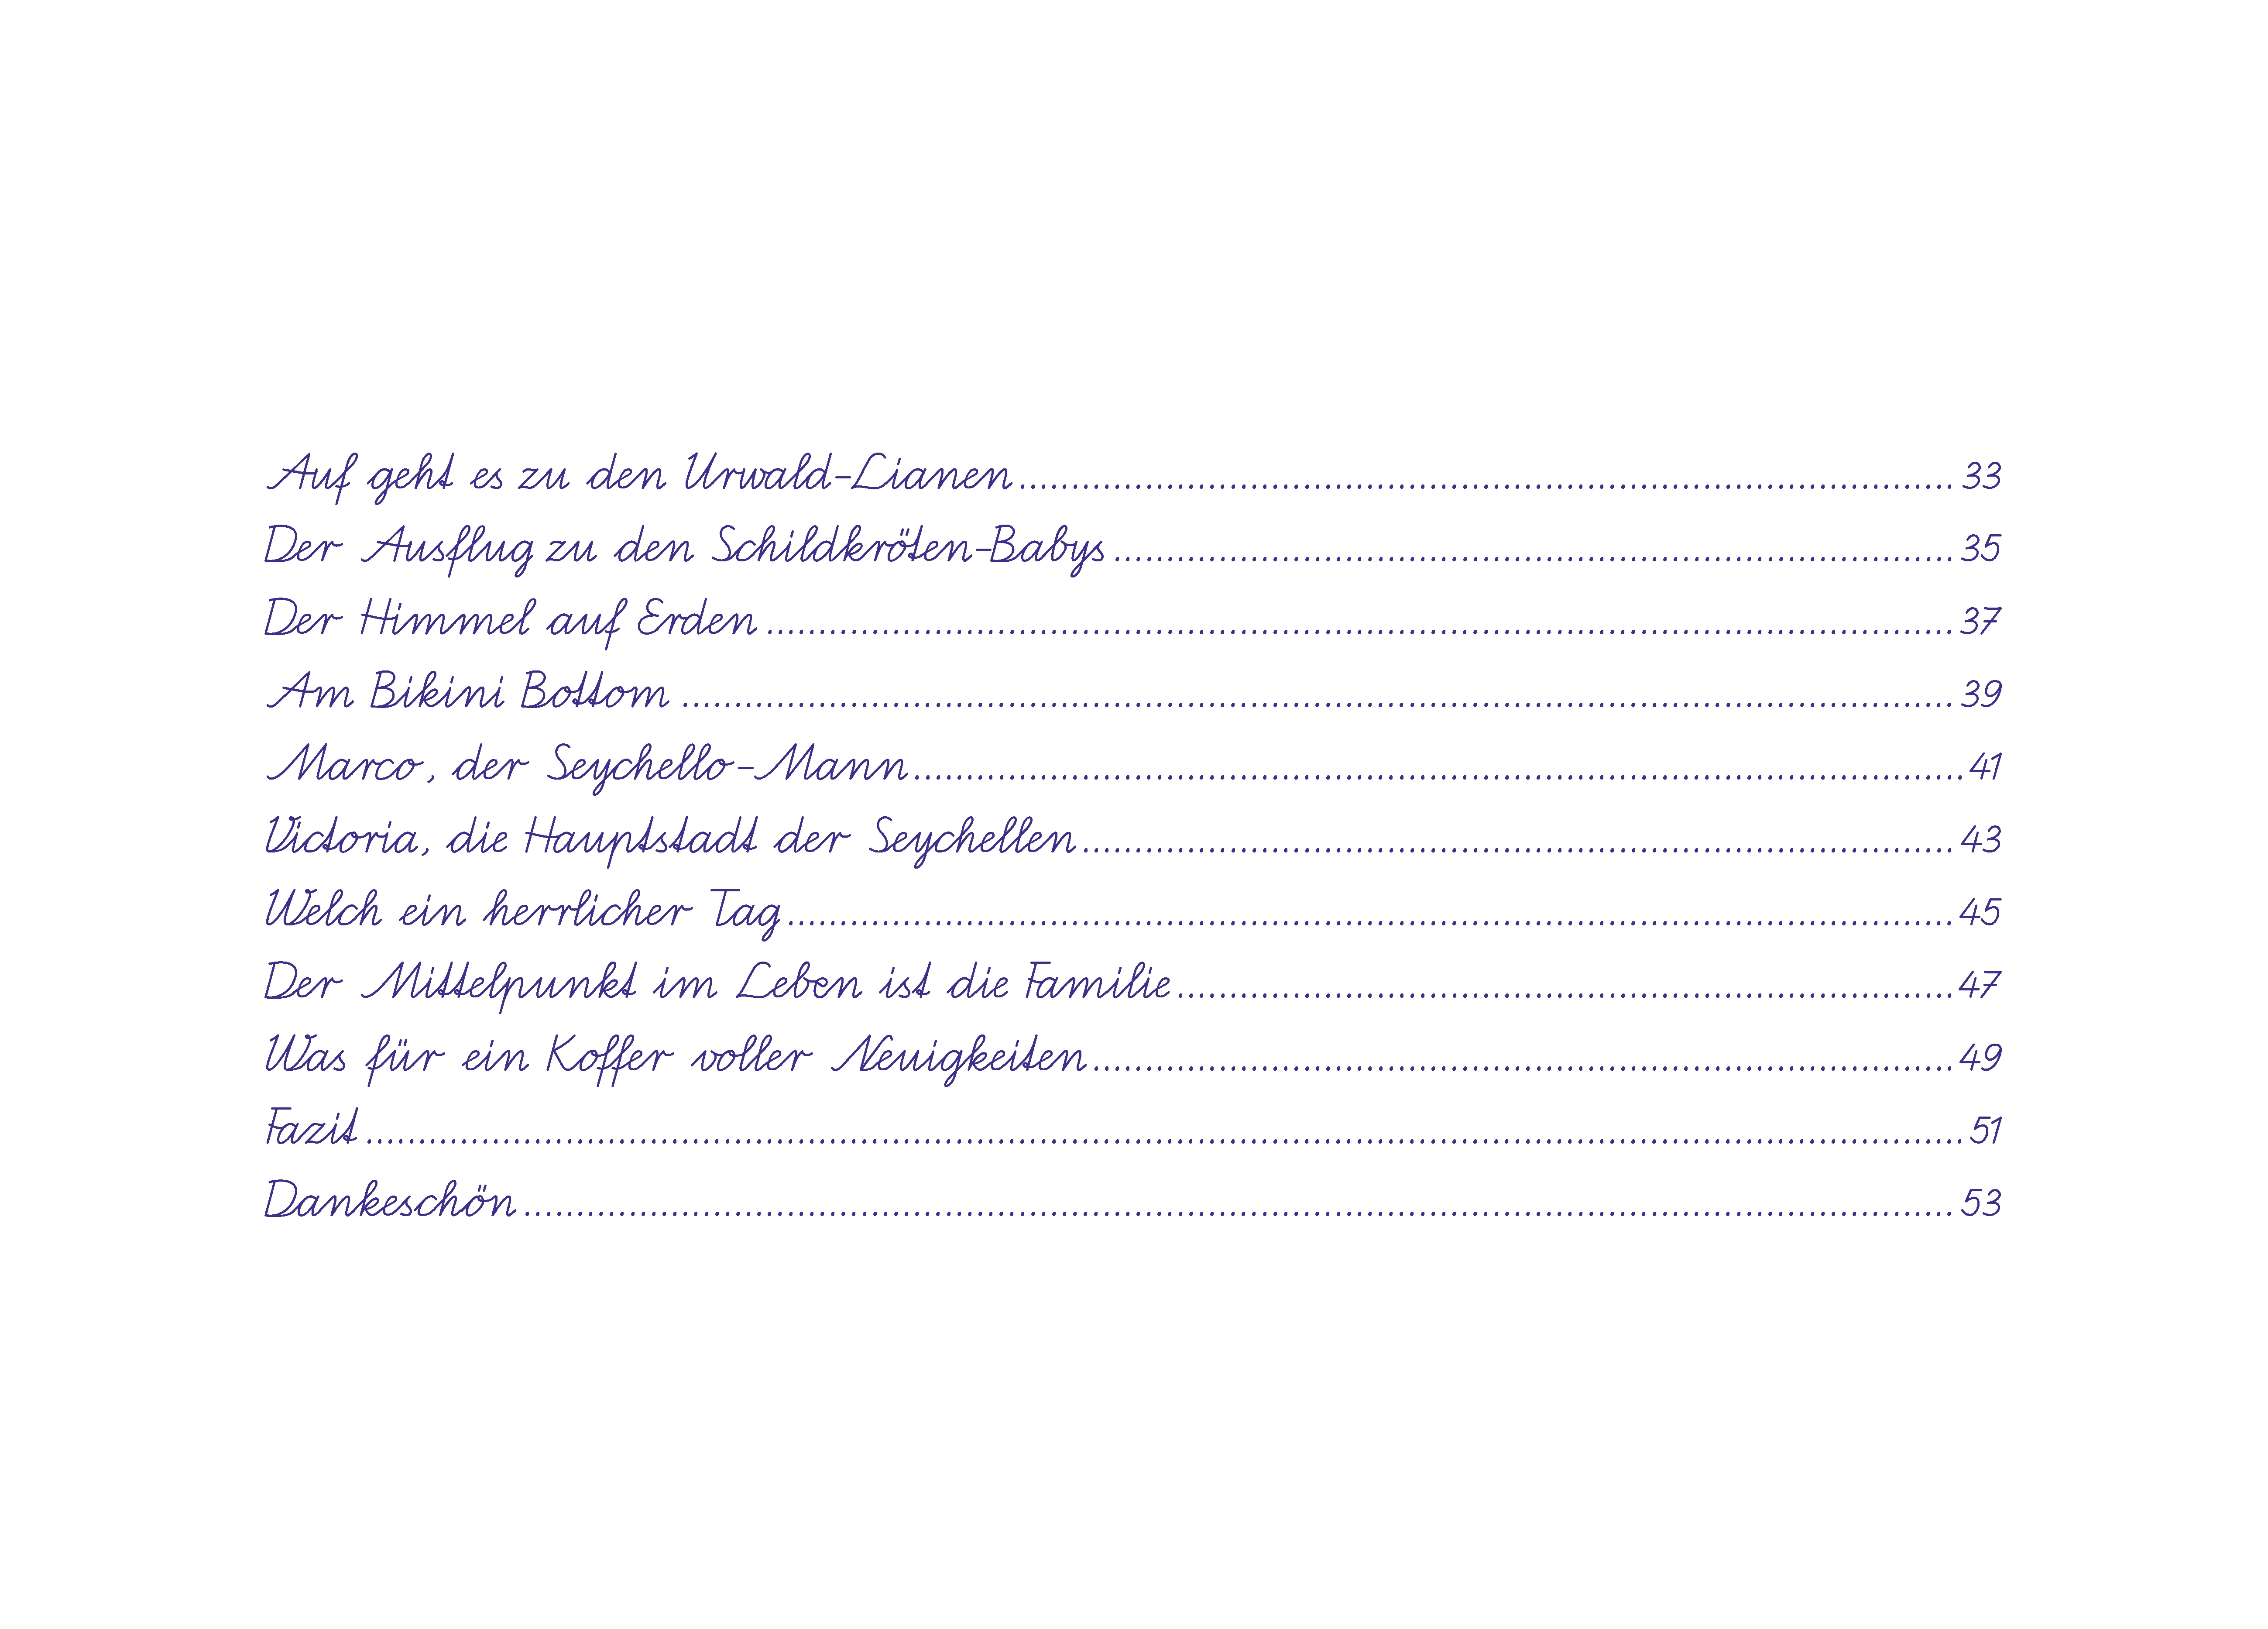 Auf geht es zu den Urwald-Lianen........................................................................................ 33
Der Ausflug zu den Schildkröten-Babys ................................................................................ 35
Der Himmel auf Erden ................................................................................................................ 37
Am Bikini Bottom ........................................................................................................................ 39
Marco, der Seychello-Mann.................................................................................................... 41
Victoria, die Hauptstadt der Seychellen................................................................................... 43
Welch ein herrlicher Tag.............................................................................................................. 45
Der Mittelpunkt im Leben ist die Familie.......................................................................... 47
Was für ein Koffer voller Neuigkeiten.................................................................................. 49
Fazit......................................................................................................................................................... 51
Dankeschön ........................................................................................................................................ 53